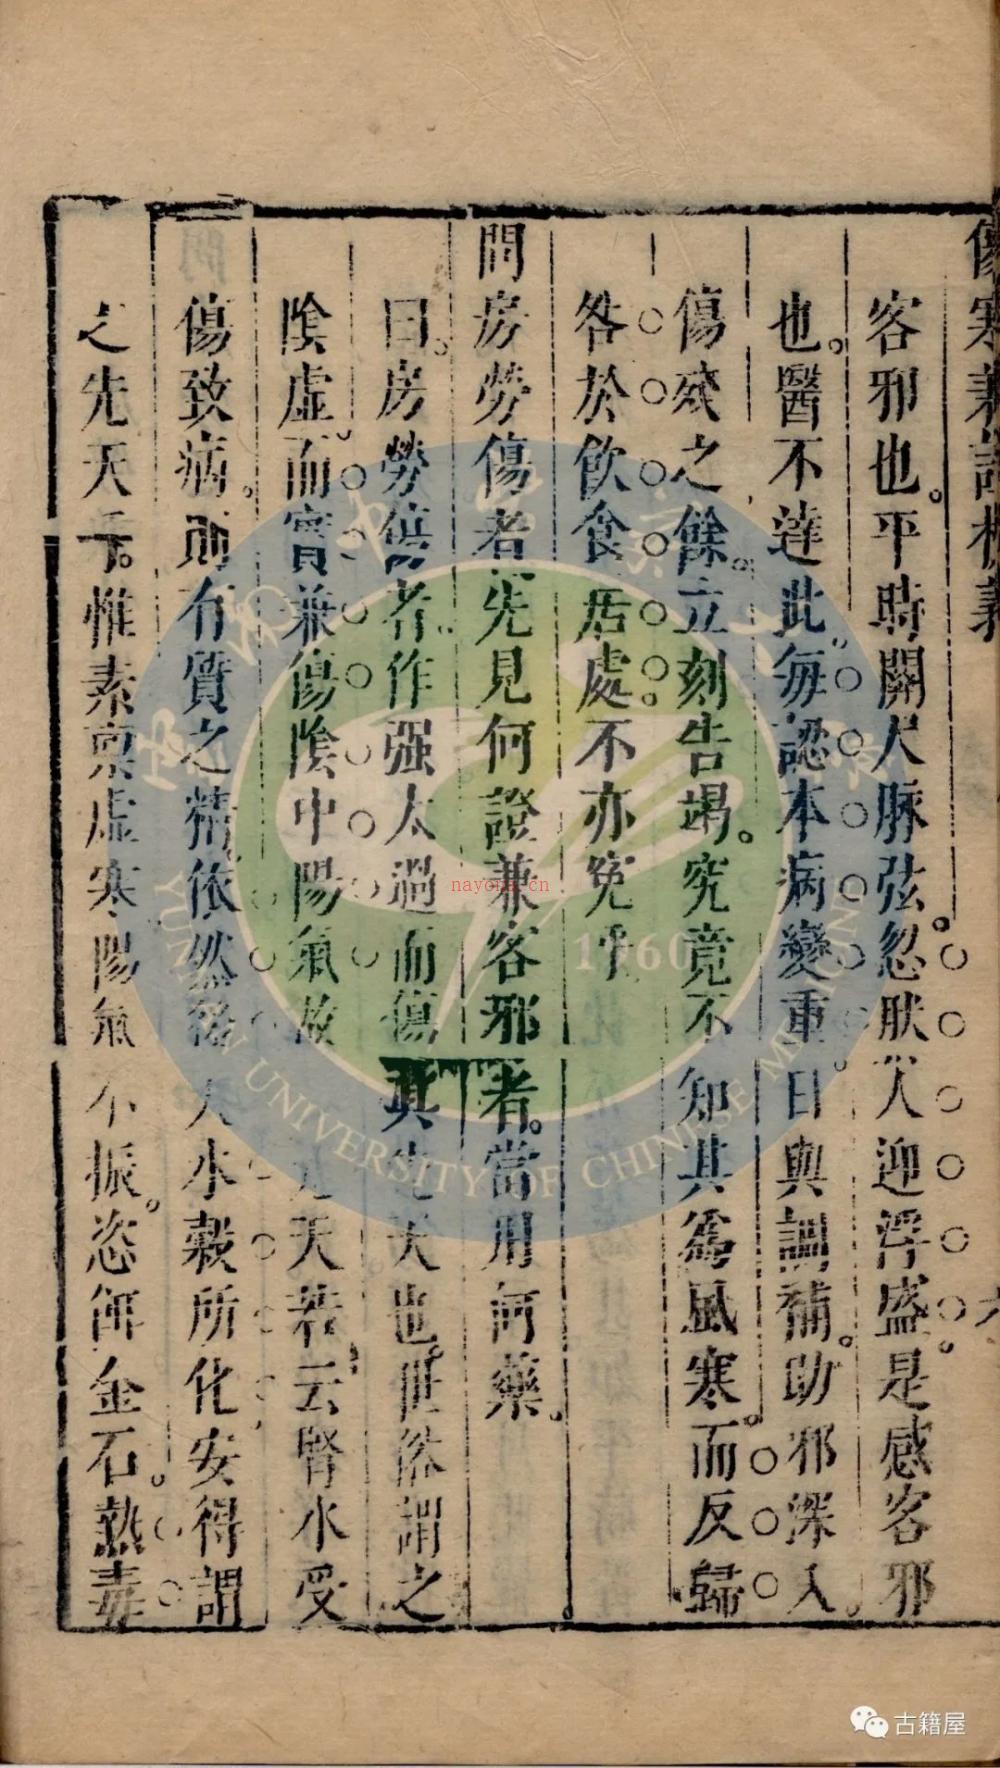 傷寒兼證析義
六
客邪也平時關尺脉弦忽然人迎浮盛是感客邪
也醫不達此每認本病變重日與調補助邪深入
傷殘之餘立刻告竭究竟不知其為風寒而反歸
咎於飲食居處不亦寃乎
問房勞傷者先見何證兼客邪者當用何藥
曰房勞傷者作强太過而傷其先天也世俗謂之
陰虛而實兼傷陰中陽氣故先天若云腎水受
傷致病則有質之精依然後人水穀所化安得謂
之先天乎惟素禀虛寒陽氣不振恣餌金石熱毒
nayona.cn
1960
YUNNAN UNIVERSITY OF CHINESE MEDICINE
古籍屋